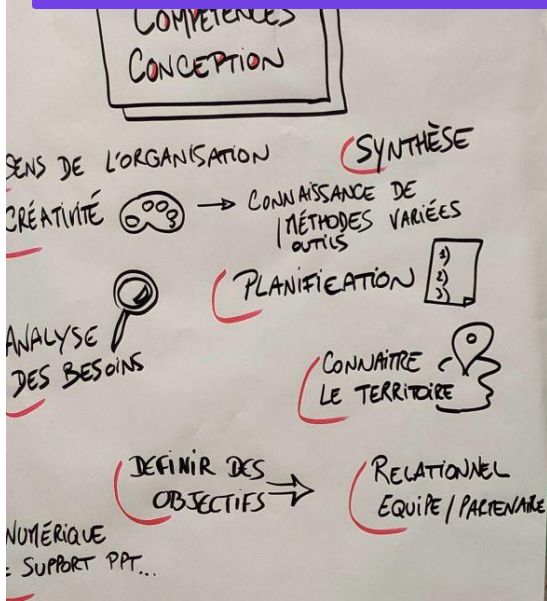 COMPÉTENCES
CONCEPTION
SENS DE L'ORGANISATION
SYNTHÈSE
CRÉATIVITÉ → CONNAISSANCE DE
MÉTHODES VARIÉES
OUTILS
PLANIFICATION
1)
2)
3)
ANALYSE
DES BESOINS
CONNAITRE
LE TERRITOIRE
DEFINIR DES
OBJECTIFS
RELATIONNEL
EQUIPE / PARTENAIRE
NUMÉRIQUE
= SUPPORT PPT...